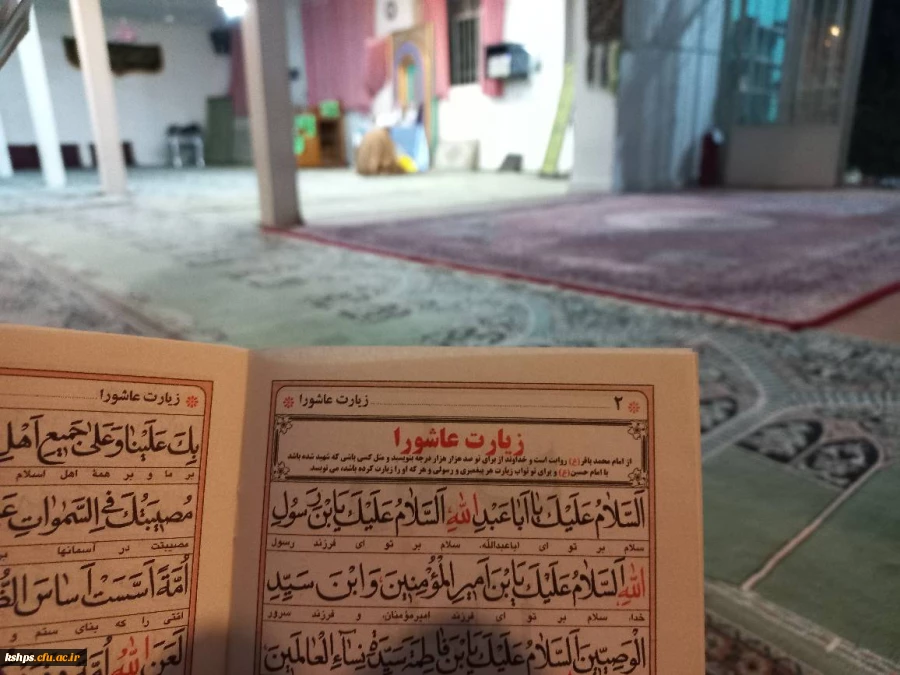 زیارت عاشورا
۲
زیارت عاشورا
از امام محمد باقر (ع) روایت است و خداوند از برای تو صد هزار هزار درجه بنویسد و مثل کسی باشی که شهید شده باشد
با امام حسین (ع) و برای تو ثواب زیارت هر پیغمبری و رسولی و هر که او را زیارت کرده باشد، می نویسد.
اَلسَّلامُ عَلَیْكَ یا اَباعَبْدِاللهِ اَلسَّلامُ عَلَیْكَ یَابْنَ رَسُولِ
سلام بر تو ای اباعبدالله، سلام بر تو ای فرزند رسول
اللهِ اَلسَّلامُ عَلَیْكَ یَابْنَ اَمیرِ الْمُؤْمِنینَ وَابْنَ سَیِّدِ
خدا، سلام بر تو ای فرزند امیرمؤمنان، و فرزند سرور
الْوَصِیّینَ اَلسَّلامُ عَلَیْكَ یَابْنَ فاطِمَةَ سَیِّدَةِ نِساءِ الْعالَمینَ
زیارت عاشورا
بِكَ عَلَیْنا وَعَلی جَمیعِ اَهْلِ
بر ما و بر همهٔ اهل اسلام
مُصیبَتُكَ فِی السَّمواتِ
مصیبتت در آسمانها
اُمَّةً اَسَّسَتْ اَساسَ
امتی را که بنای ستم و
لَعَنَ اللهُ
kshps.cfu.ac.ir